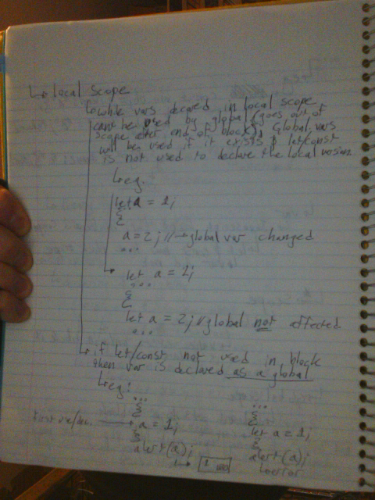 ↳ local scope
↳ while vars decared in local scope
cant be used by global (goes out of
scope after end of block), global vars
will be used if it exists & let/const
is not used to declare the local version
↳ eg.
let a = 1;
{
a = 2; // → global var changed
...
let a = 1;
...
{
let a = 2; // global not affected
...
↳ if let/const not used in block
then var is declared as a global
↳ eg:
... ...
{ {
→ a = 1; let a = 1;
} }
alert(a); alert(a);
↳ 1 ↳ error